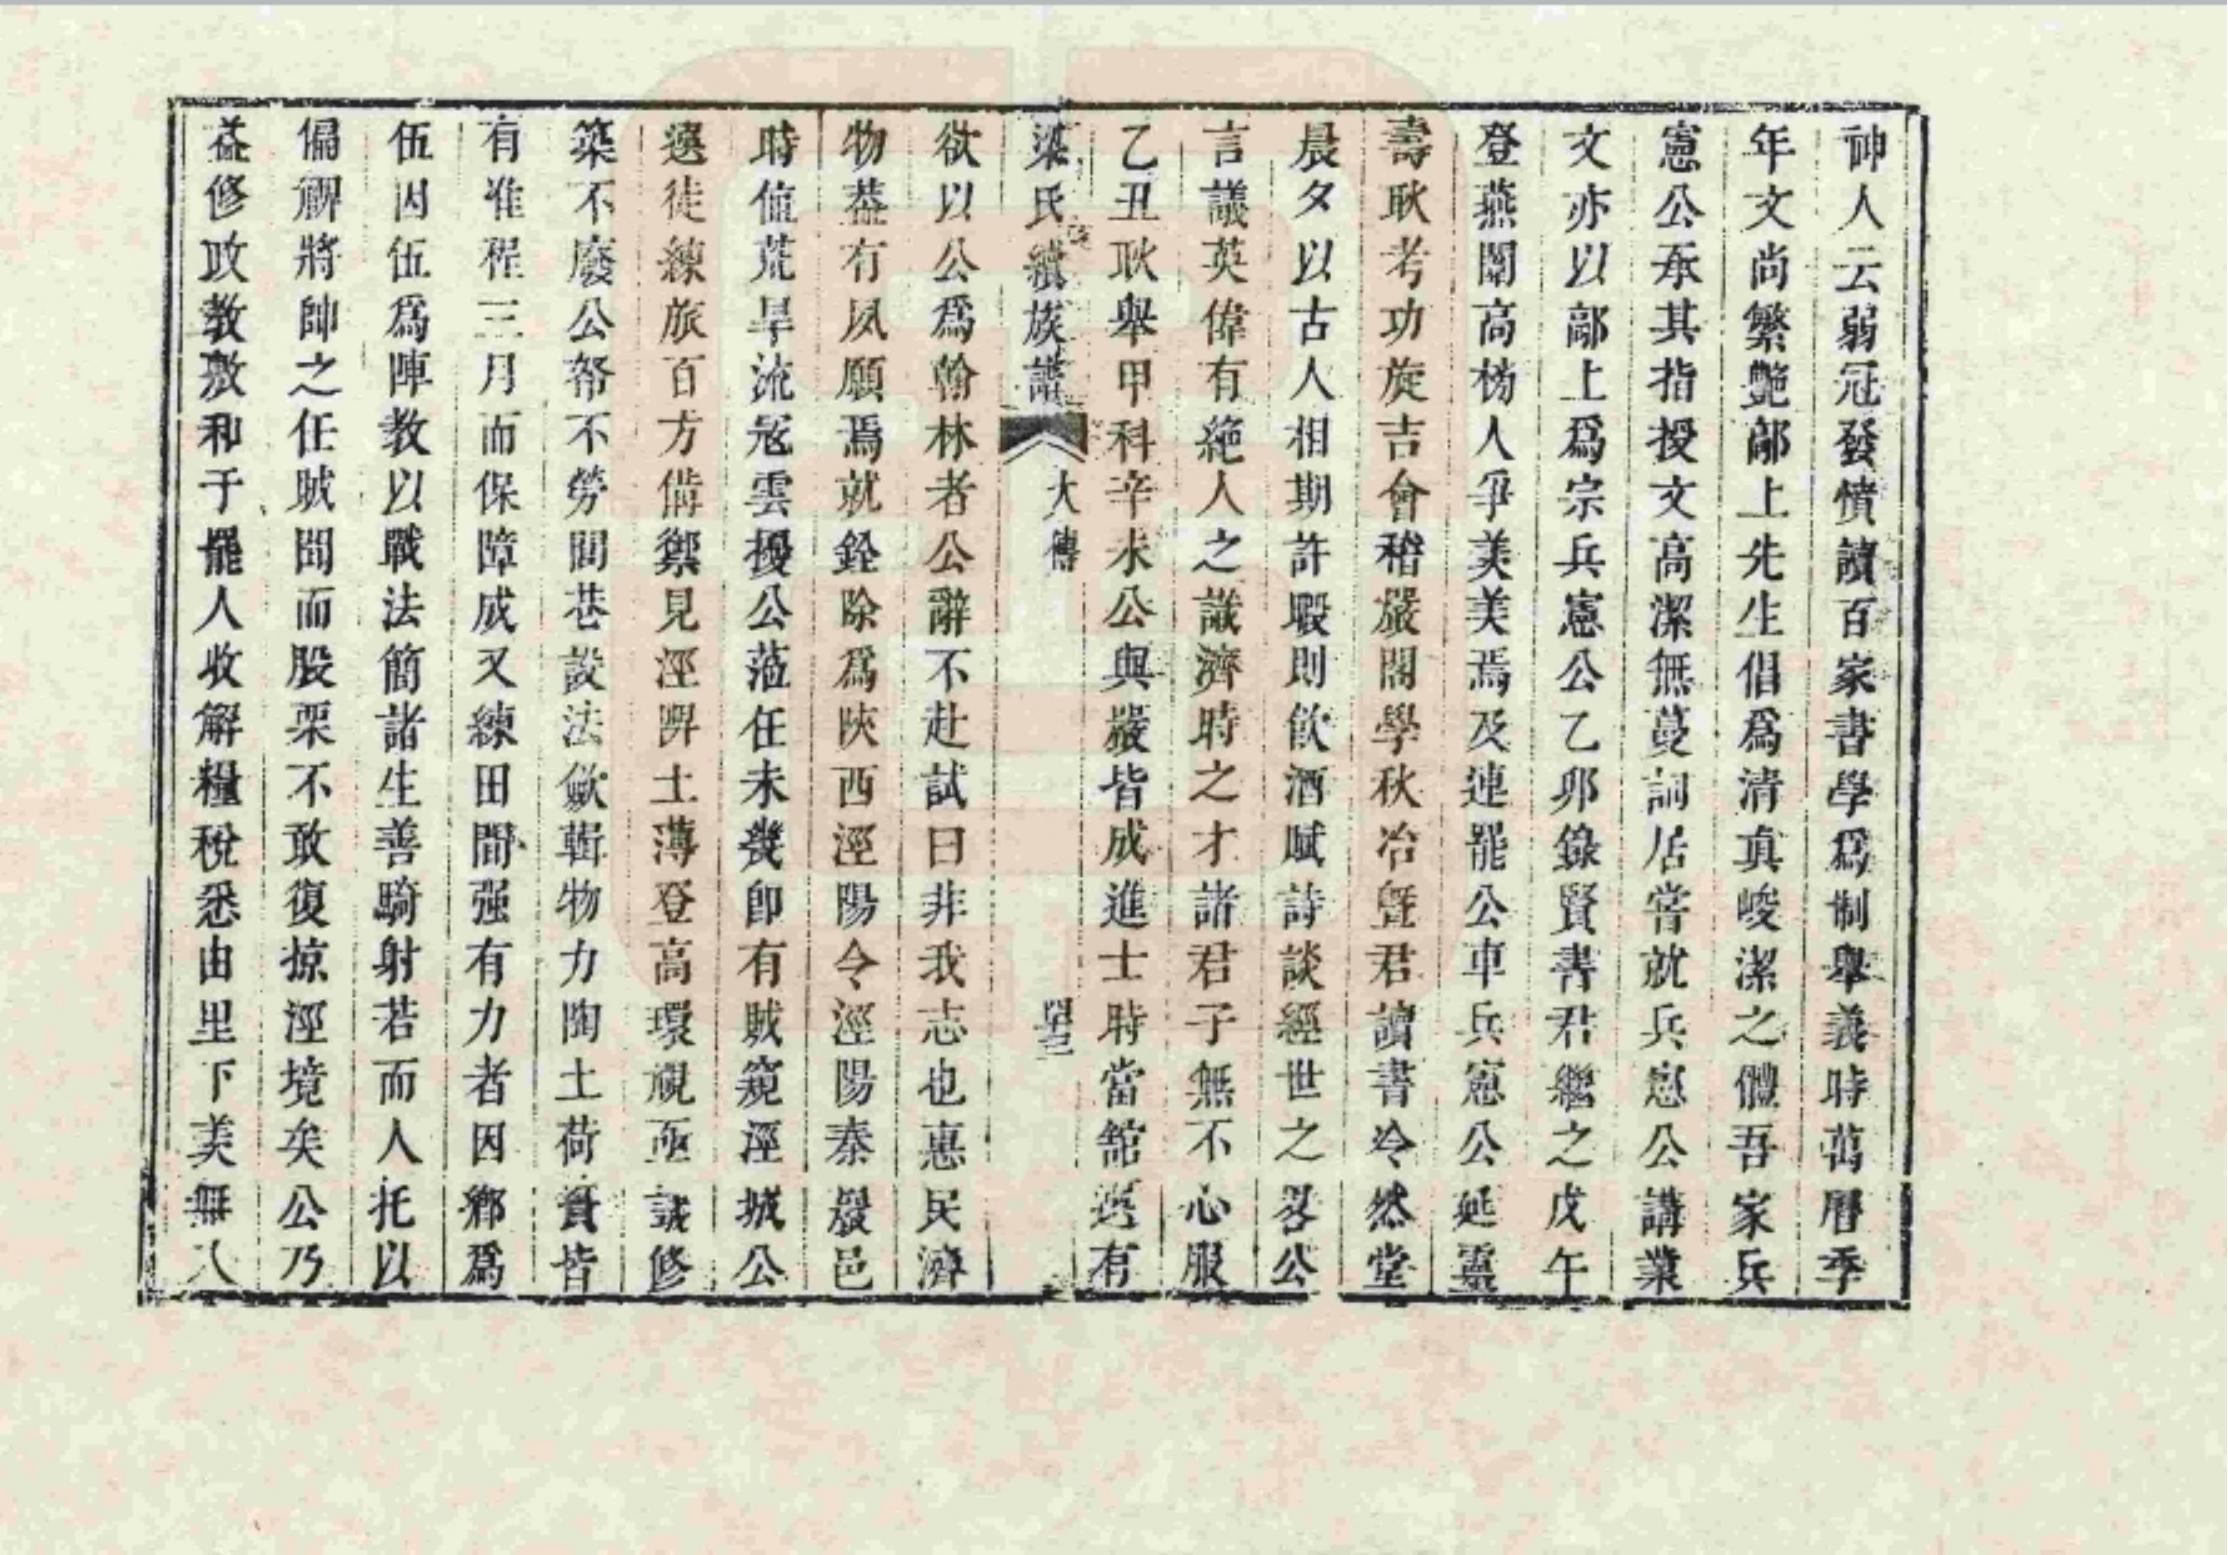 神人云弱冠發憤讀百家書學爲制舉義時萬曆季
年文尚繁艷鄗上先生倡爲清真峻潔之體吾家兵
憲公承其指授文高潔無蔓詞居嘗就兵憲公講業
文亦以鄗上爲宗兵憲公乙卯錄賢書君繼之戊午
登燕闈高榜人爭美美焉及連罷公車兵憲公延靈
壽耿考功旋吉會稽嚴閣學秋冶曁君讀書冷然堂
晨夕以古人相期許暇則飲酒賦詩談經世之畧公
言議英偉有絶人之識濟時之才諸君子無不心服
乙丑耿舉甲科辛未公與嚴皆成進士時當舘選有
梁氏續族譜 大傳
欲以公爲翰林者公辭不赴試曰非我志也惠民濟
物葢有夙願焉就銓除爲陝西涇陽令涇陽秦嚴邑
時値荒旱流冦雲擾公蒞任未幾即有賊窺涇城公
選徒練旅百方備禦見涇陴土薄登高環視亟議修
築不廢公帑不勞閭巷設法歛輯物力陶土荷蕢皆
有准程三月而保障成又練田間强有力者因鄉爲
伍因伍爲陣教以戰法簡諸生善騎射若而人托以
偏裨將帥之任賊聞而股栗不敢復掠涇境矣公乃
益修政教敦和于罷人收解糧稅悉由里下美無人